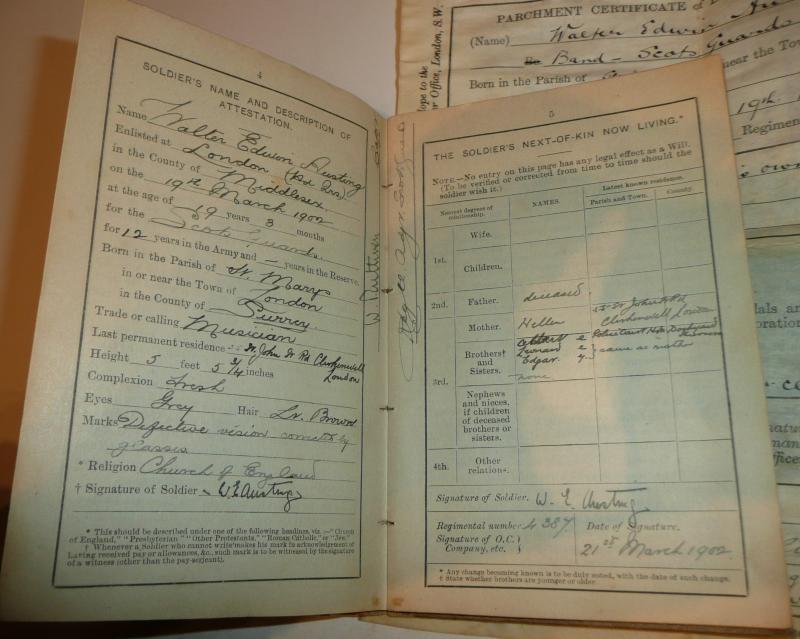 4
SOLDIER'S NAME AND DESCRIPTION OF
ATTESTATION.
Name Walter Edwin Austing
Enlisted at London
in the County of Middlesex.
on the 19th March 1902
at the age of 19 years 3 months
for the Scots Guards.
for 12 years in the Army and – years in the Reserve.
Born in the Parish of St. Marys
in or near the Town of London
in the County of Surrey.
Trade or calling Musician
Last permanent residence St. John St Rd Clerkenwell
London
Height 5 feet 5 3/4 inches
Complexion Fresh
Eyes Grey Hair Lt. Brown
Marks Defective vision corrected by
glasses
* Religion Church of England
† Signature of Soldier W. E. Austing
* This should be described under one of the following headings, viz.:—"Church
of England," "Presbyterian" "Other Protestants," "Roman Catholic," or "Jew."
† Whenever a Soldier who cannot write makes his mark in acknowledgement of
having received pay or allowances, &c., such mark is to be witnessed by the signature
of a witness (other than the pay-sergeant).
5
THE SOLDIER'S NEXT-OF-KIN NOW LIVING.*
NOTE.—No entry on this page has any legal effect as a Will.
(To be verified or corrected from time to time should the
soldier wish it.)
Nearest degrees of relationship. NAMES. Latest known residence.
Parish and Town. County.
1st. Wife.
Children.
2nd. Father. deceased.
Mother. Hellen St John St Rd
Clerkenwell London
3rd. Brothers† and Sisters. Albert e
Leonard e
Edgar y same as mother
none
Nephews and nieces, if children of deceased brothers or sisters.
4th. Other relations.
Signature of Soldier. W. E. Austing
Regimental number 4387 Date of Signature.
Signature of O.C. Company, etc. 21st March 1902
* Any change becoming known is to be duly noted, with the date of such change.
† State whether brothers are younger or older.
PARCHMENT CERTIFICATE of
(Name) Walter Edwin Au
Band - Scots Guards
Born in the Parish of
near the Tow
19th
Regimen
War Office, London, S.W.